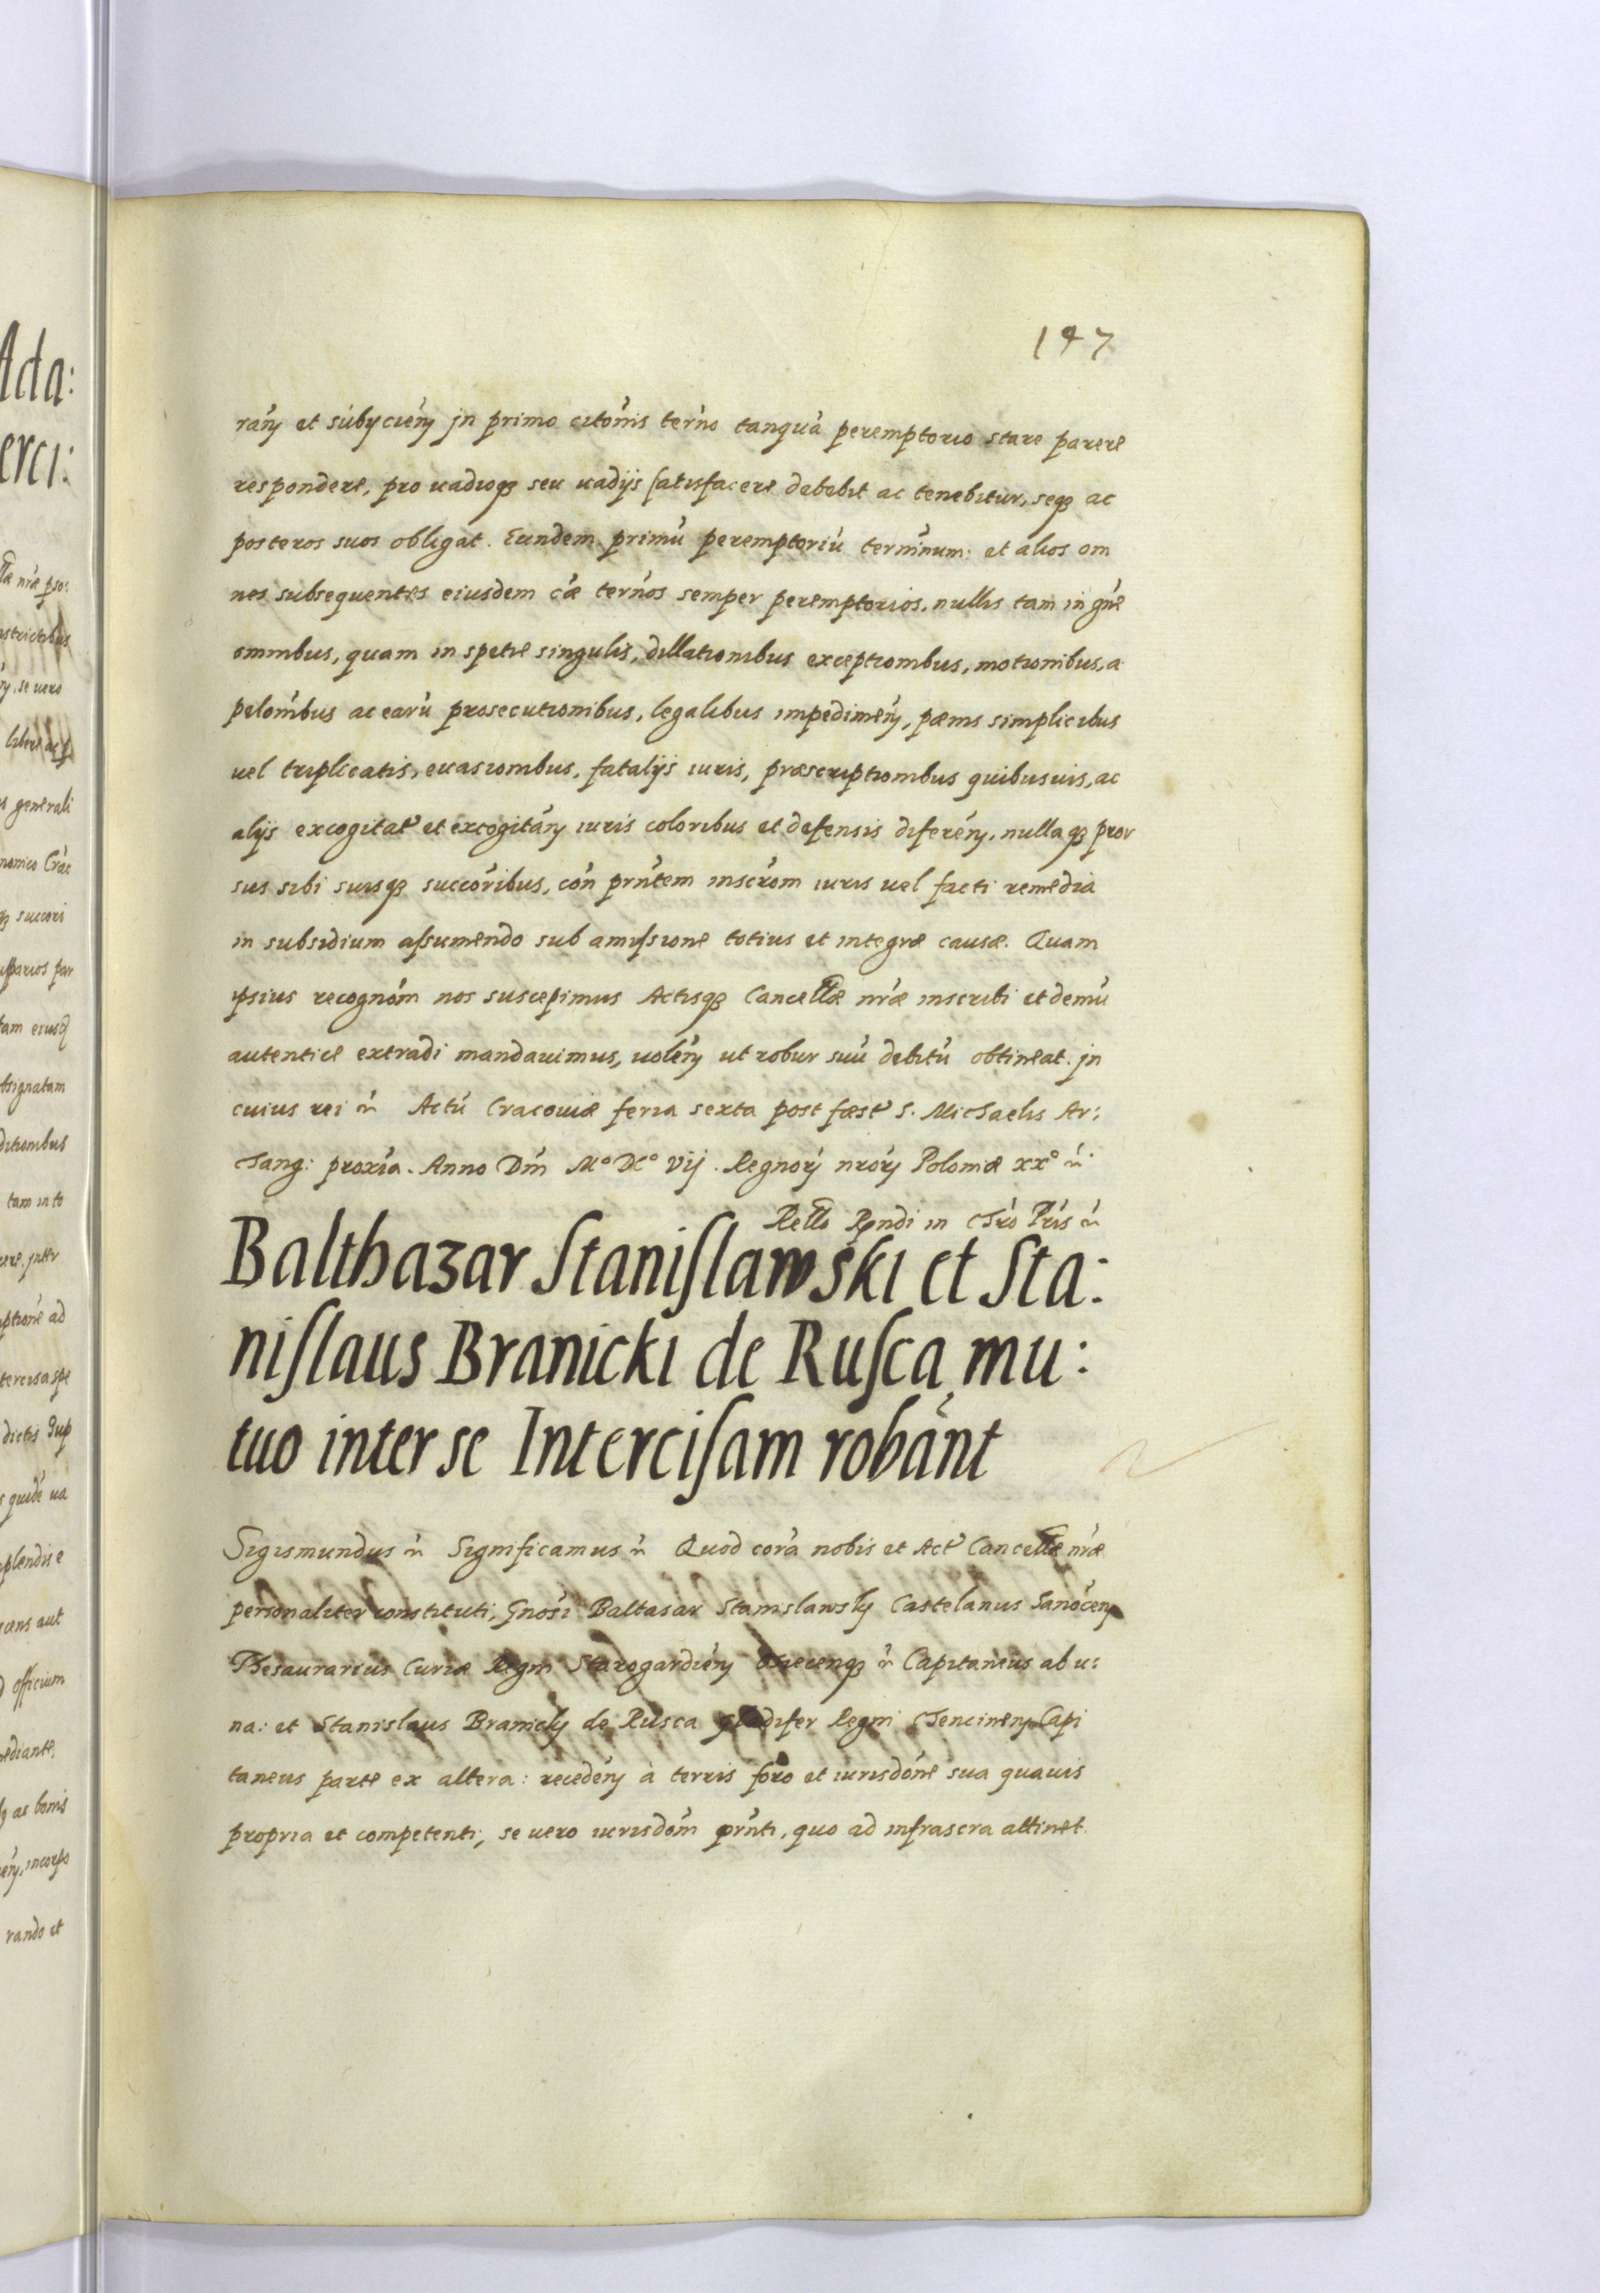 147
rań et subycień jn primo citońis terńo tanquā peremptorio stare parere
respondere, pro uadioq3 seu uadijs satisfacere debebit ac tenebitur, seq3 ac
posteros suos obligat. Eundem primū peremptoriū termīnum: et alios om
nes subsequentes eiusdem cāe terńos semper peremptorios, nullis tam in gńe
omnibus, quam in spetie singulis, dillationibus exceptionibus, motionibus, a
pelońibus ac earū prosecutionibus, legalibus impedimeń, pœnis simplicibus
uel triplicatis, euasionibus, fatalijs iuris, præscriptionibus quibusuis, ac
alijs excogitat' et excogitań iuris coloribus et defensis difereń, nullaq3 pror
sus sibi suisq3 succoribus, coń prńtem inscrom iuris uel facti remedia
in subsidium assumendo sub amissione totius et integræ causæ. Quam
ipsius recognom nos suscepimus Actisq3 Cancellæ nræ inscribi et demū
autentice extradi mandauimus, uoleń ut robur suū debitū obtineat. jn
cuius rei ñ Actū Cracouiæ feria sexta post fæst' S. Michaelis Ar:
chang: proxīa. Anno Dñi M° DC° Vij. Regnorȳ nrorȳ Poloniæ xx° ñ
Rello Rndi in Chrō Pris ñ
Balthazar Stanislawski et Sta:
nislaus Branicki de Rusca mu:
tuo inter se Intercisam robānt
Sigismundus ñ Significamus ñ Quod corā nobis et Act' Cancellæ nræ
personaliter constituti, Gnosi Baltasar Stanislawsky Castelanus Sanoceń
Thesaurarius Curiæ Regni Starogardień ñ Capitaneus ab u:
na: et Stanislaus Branicky de Rusca gladifer Regni Chencineń Capi
taneus parte ex altera: recedeń à terris foro et iurisdońe sua quauis
propria et competenti, se uero iurisdom prńti, quo ad infrascra attinet.